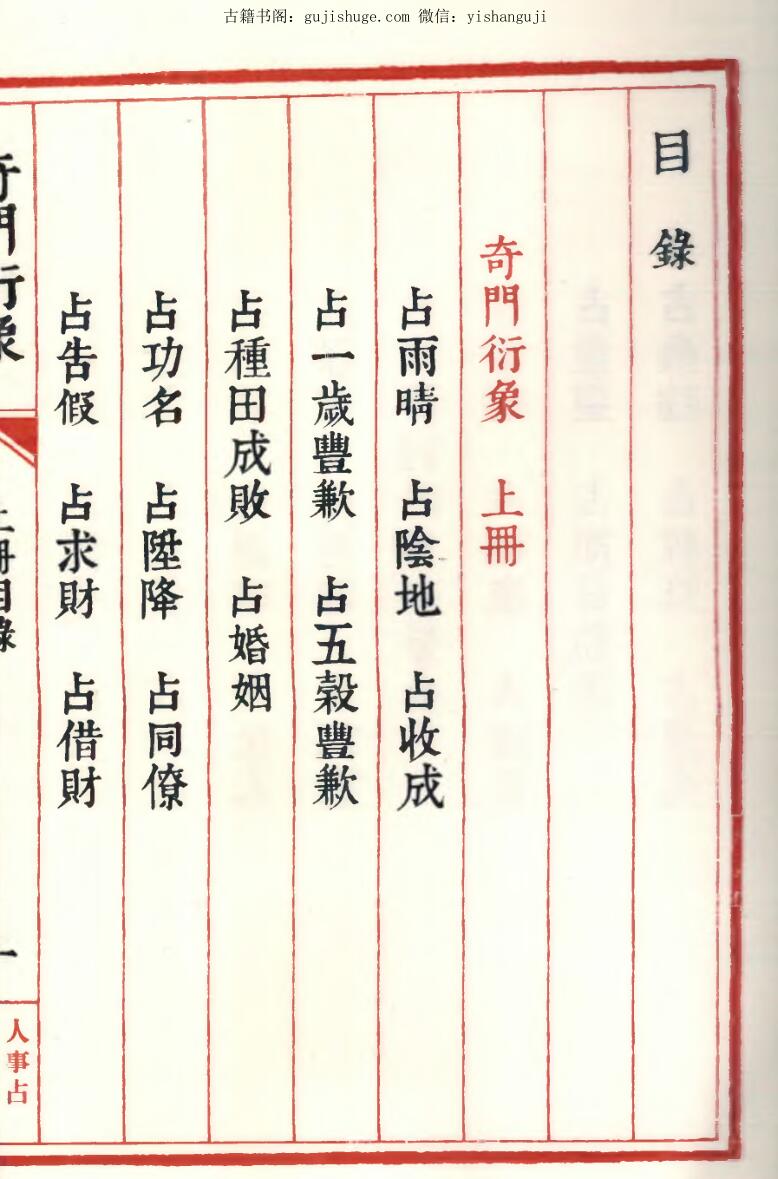 古籍书阁：gujishuge.com 微信：yishanguji
目錄
奇門衍象 上冊
占雨晴 占陰地 占收成
占一歲豐歉 占五穀豐歉
占種田成敗 占婚姻
占功名 占陞降 占同僚
占告假 占求財 占借財
奇門衍象
上冊目錄
一
人事占